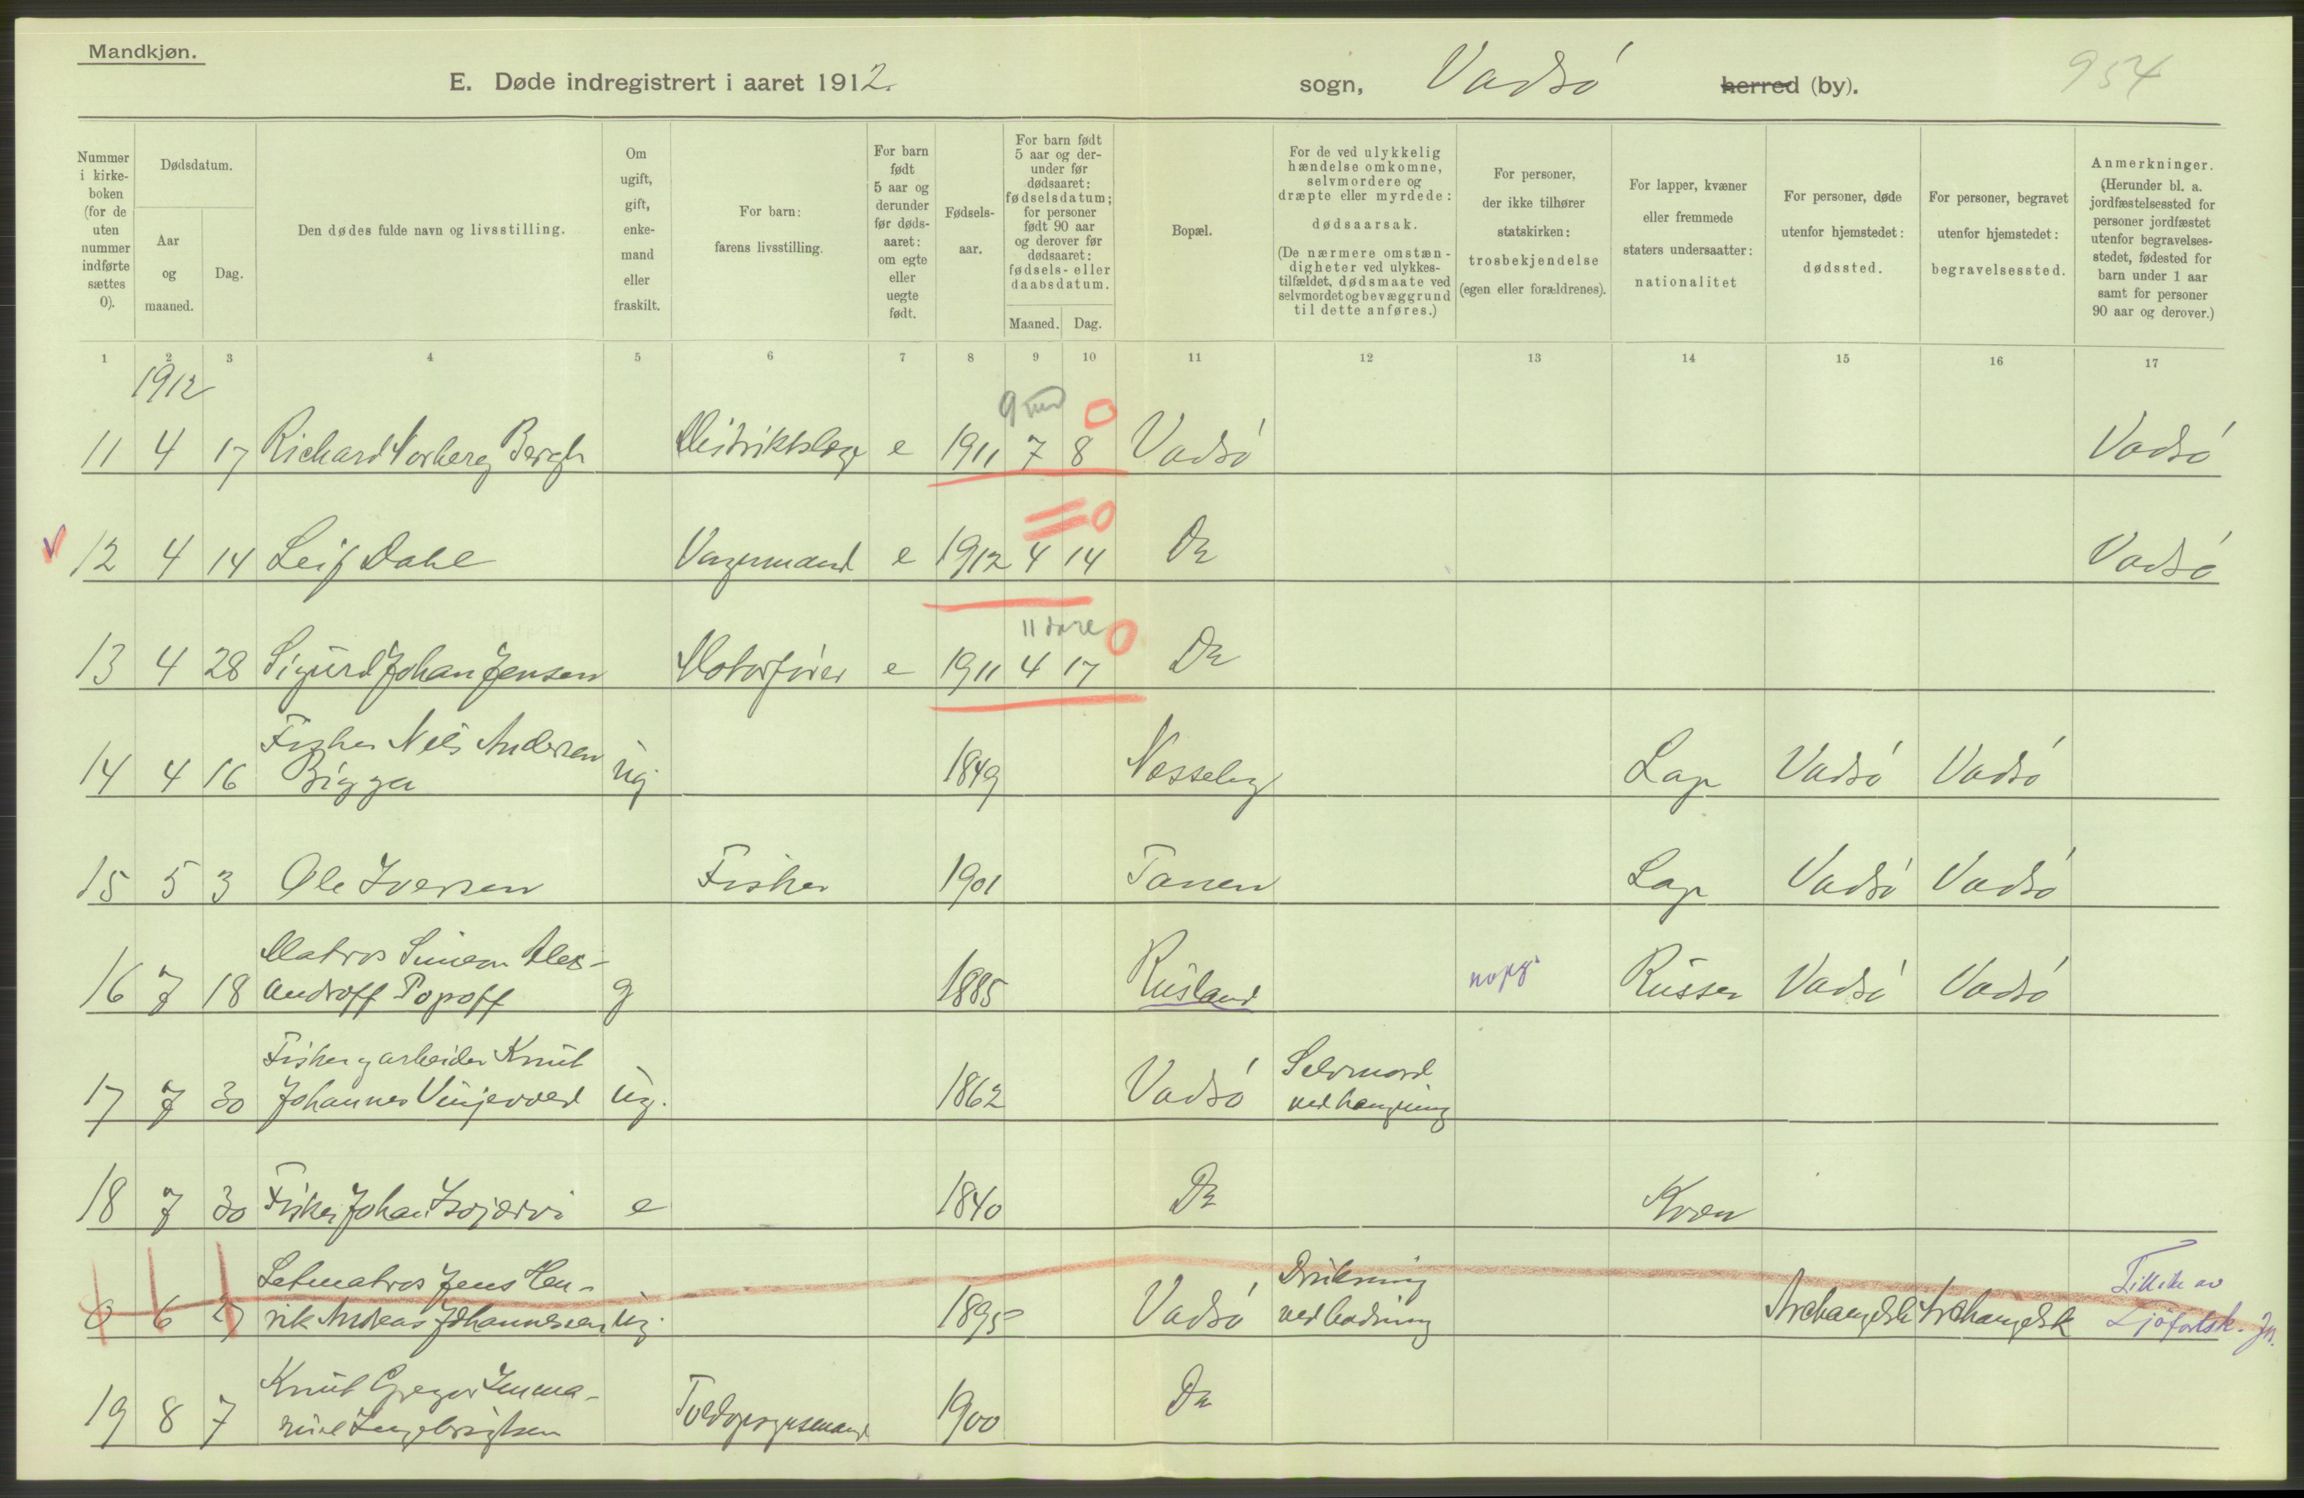 Mandkjøn.
E. Døde indregistrert i aaret 1912.
sogn, Vadsö herred (by).
954
Nummer i kirkeboken (for de uten nummer indførte sættes 0).
Dødsdatum.
Aar og maaned.
Dag.
Den dødes fulde navn og livsstilling.
Om ugift, gift, enkemand eller fraskilt.
For barn: farens livsstilling.
For barn født 5 aar og derunder før dødsaaret: om egte eller uegte født.
Fødselsaar.
For barn født 5 aar og derunder før dødsaaret: fødselsdatum; for personer født 90 aar og derover før dødsaaret: fødsels- eller daabsdatum.
Maaned. Dag.
Bopæl.
For de ved ulykkelig hændelse omkomne, selvmordere og dræpte eller myrdede: dødsaarsak. (De nærmere omstændigheter ved ulykkestilfældet, dødsmaate ved selvmordet og bevæggrund til dette anføres.)
For personer, der ikke tilhører statskirken: trosbekjendelse (egen eller forældrenes).
For lapper, kvæner eller fremmede staters undersaatter: nationalitet
For personer, døde utenfor hjemstedet: dødssted.
For personer, begravet utenfor hjemstedet: begravelsessted.
Anmerkninger. (Herunder bl. a. jordfæstelsessted for personer jordfæstet utenfor begravelsesstedet, fødested for barn under 1 aar samt for personer 90 aar og derover.)
1 2 3 4 5 6 7 8 9 10 11 12 13 14 15 16 17
1912
9 md 0
11 4 17 Richard Norberg Bergh Distriktslæge e 1911 7 8 Vadsö Vadsö
0
12 4 14 Leif Dahl e 1912 4 14 Do Vadsö
0
13 4 28 Sigurd Johan Jensen Motorfører e 1911 4 17 Do
Fisker Nils Andersen
14 4 16 Bigga ug 1849 Nesseby Lap Vadsö Vadsö
15 5 3 Ole Iversen Fisker 1901 Tanen Lap Vadsö Vadsö
Matros Simeon Alex-
16 7 18 androff Popoff g 1885 Rusland Russer Vadsö Vadsö
Fisker g arbeider Knut Selvmord
17 7 30 Johannes ug. 1862 Vadsö ved hængning
18 7 30 Fisker Johan e 1840 Do Kvæn
Letmatros Jens Hen- Drukning Tillik av
0 6 27 rik Andreas Johannesen ug. 1895 Vadsö ved badning Archangelsk Archangelsk Sjöfartsk.
Knut Gregor Imma-
19 8 7 nuel Ingebrigtsen Toldopsynsmand 1900 Do